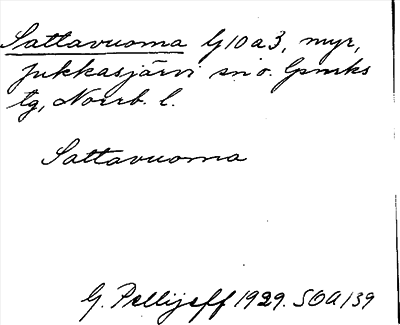 Sattavuoma G10a3, myr,
Jukkasjärvi sn o. Lpmrks
tg, Norrb. l.
Sattavuoma
G. Pellijeff 1929. SOA 139